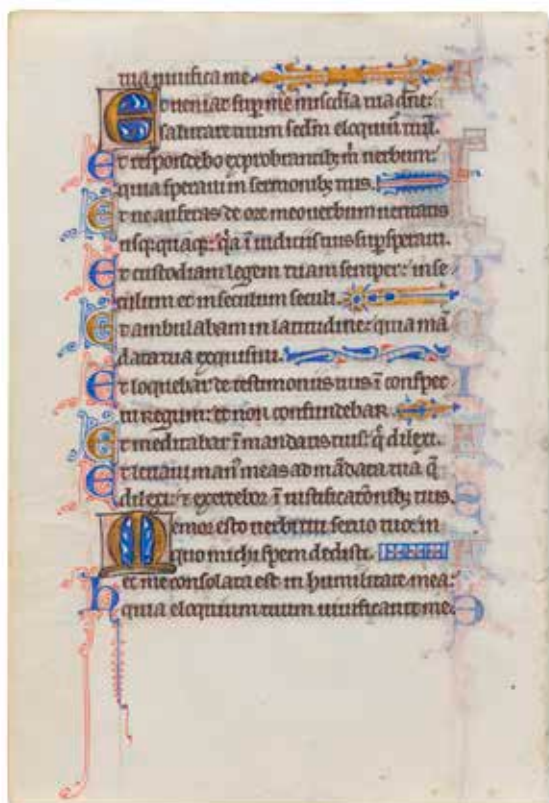 tua uiuifica me.
Et ueniat sup me misc̄dia tua dn̄e:
salutare tuum scdm̄ eloquiū tuū.
Et respondebo exprobrantibȝ m̄ uerbum:
quia speraui in sermonibȝ tuis.
Et ne auferas de ore meo uerbum ueritatis
usq̢quaq̢: q̇a ī iudiciis tuis supsperaui.
Et custodiam legem tuam semper: in se
culum et in seculum seculi.
Et ambulabam in latitudine: quia mā
data tua exquisiui.
Et loquebar de testimoniis tuis ī conspec
tu regum: et non confundebar.
Et meditabar ī mandatis tuis: q̄ dilexi.
Et leuaui man᷒ meas ad mādata tua q̄
dilexi: ⁊ exercebor ī iustificatōnibȝ tuis.
Memor esto uerbi tui seruo tuo: in
quo michi spem dedisti.
hec me consolata est in humilitate mea:
quia eloquium tuum uiuificauit me.